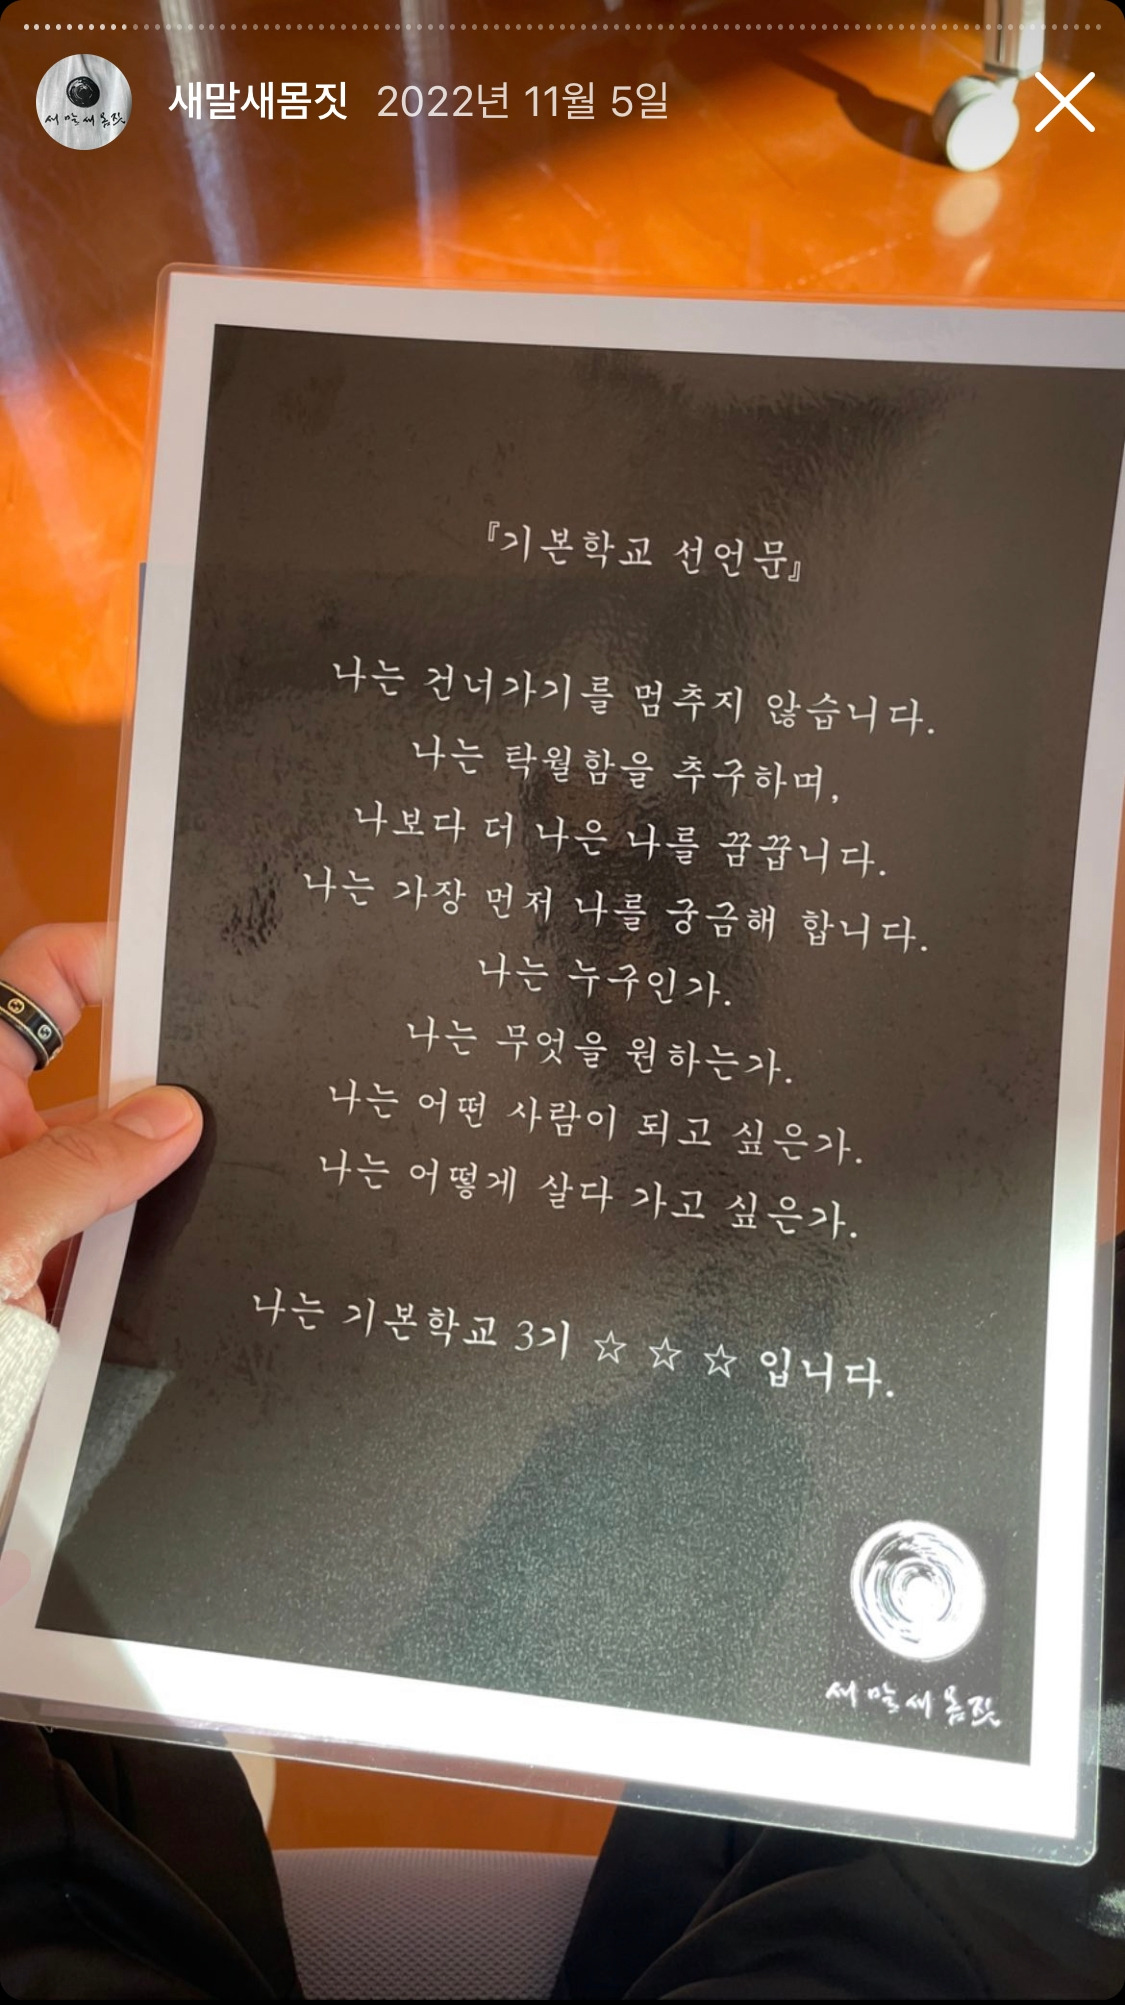 새말새몸짓 2022년 11월 5일
새말새몸짓
『기본학교 선언문』
나는 건너가기를 멈추지 않습니다.
나는 탁월함을 추구하며,
나보다 더 나은 나를 꿈꿉니다.
나는 가장 먼저 나를 궁금해 합니다.
나는 누구인가.
나는 무엇을 원하는가.
나는 어떤 사람이 되고 싶은가.
나는 어떻게 살다 가고 싶은가.
나는 기본학교 3기 ☆ ☆ ☆ 입니다.
새말새몸짓